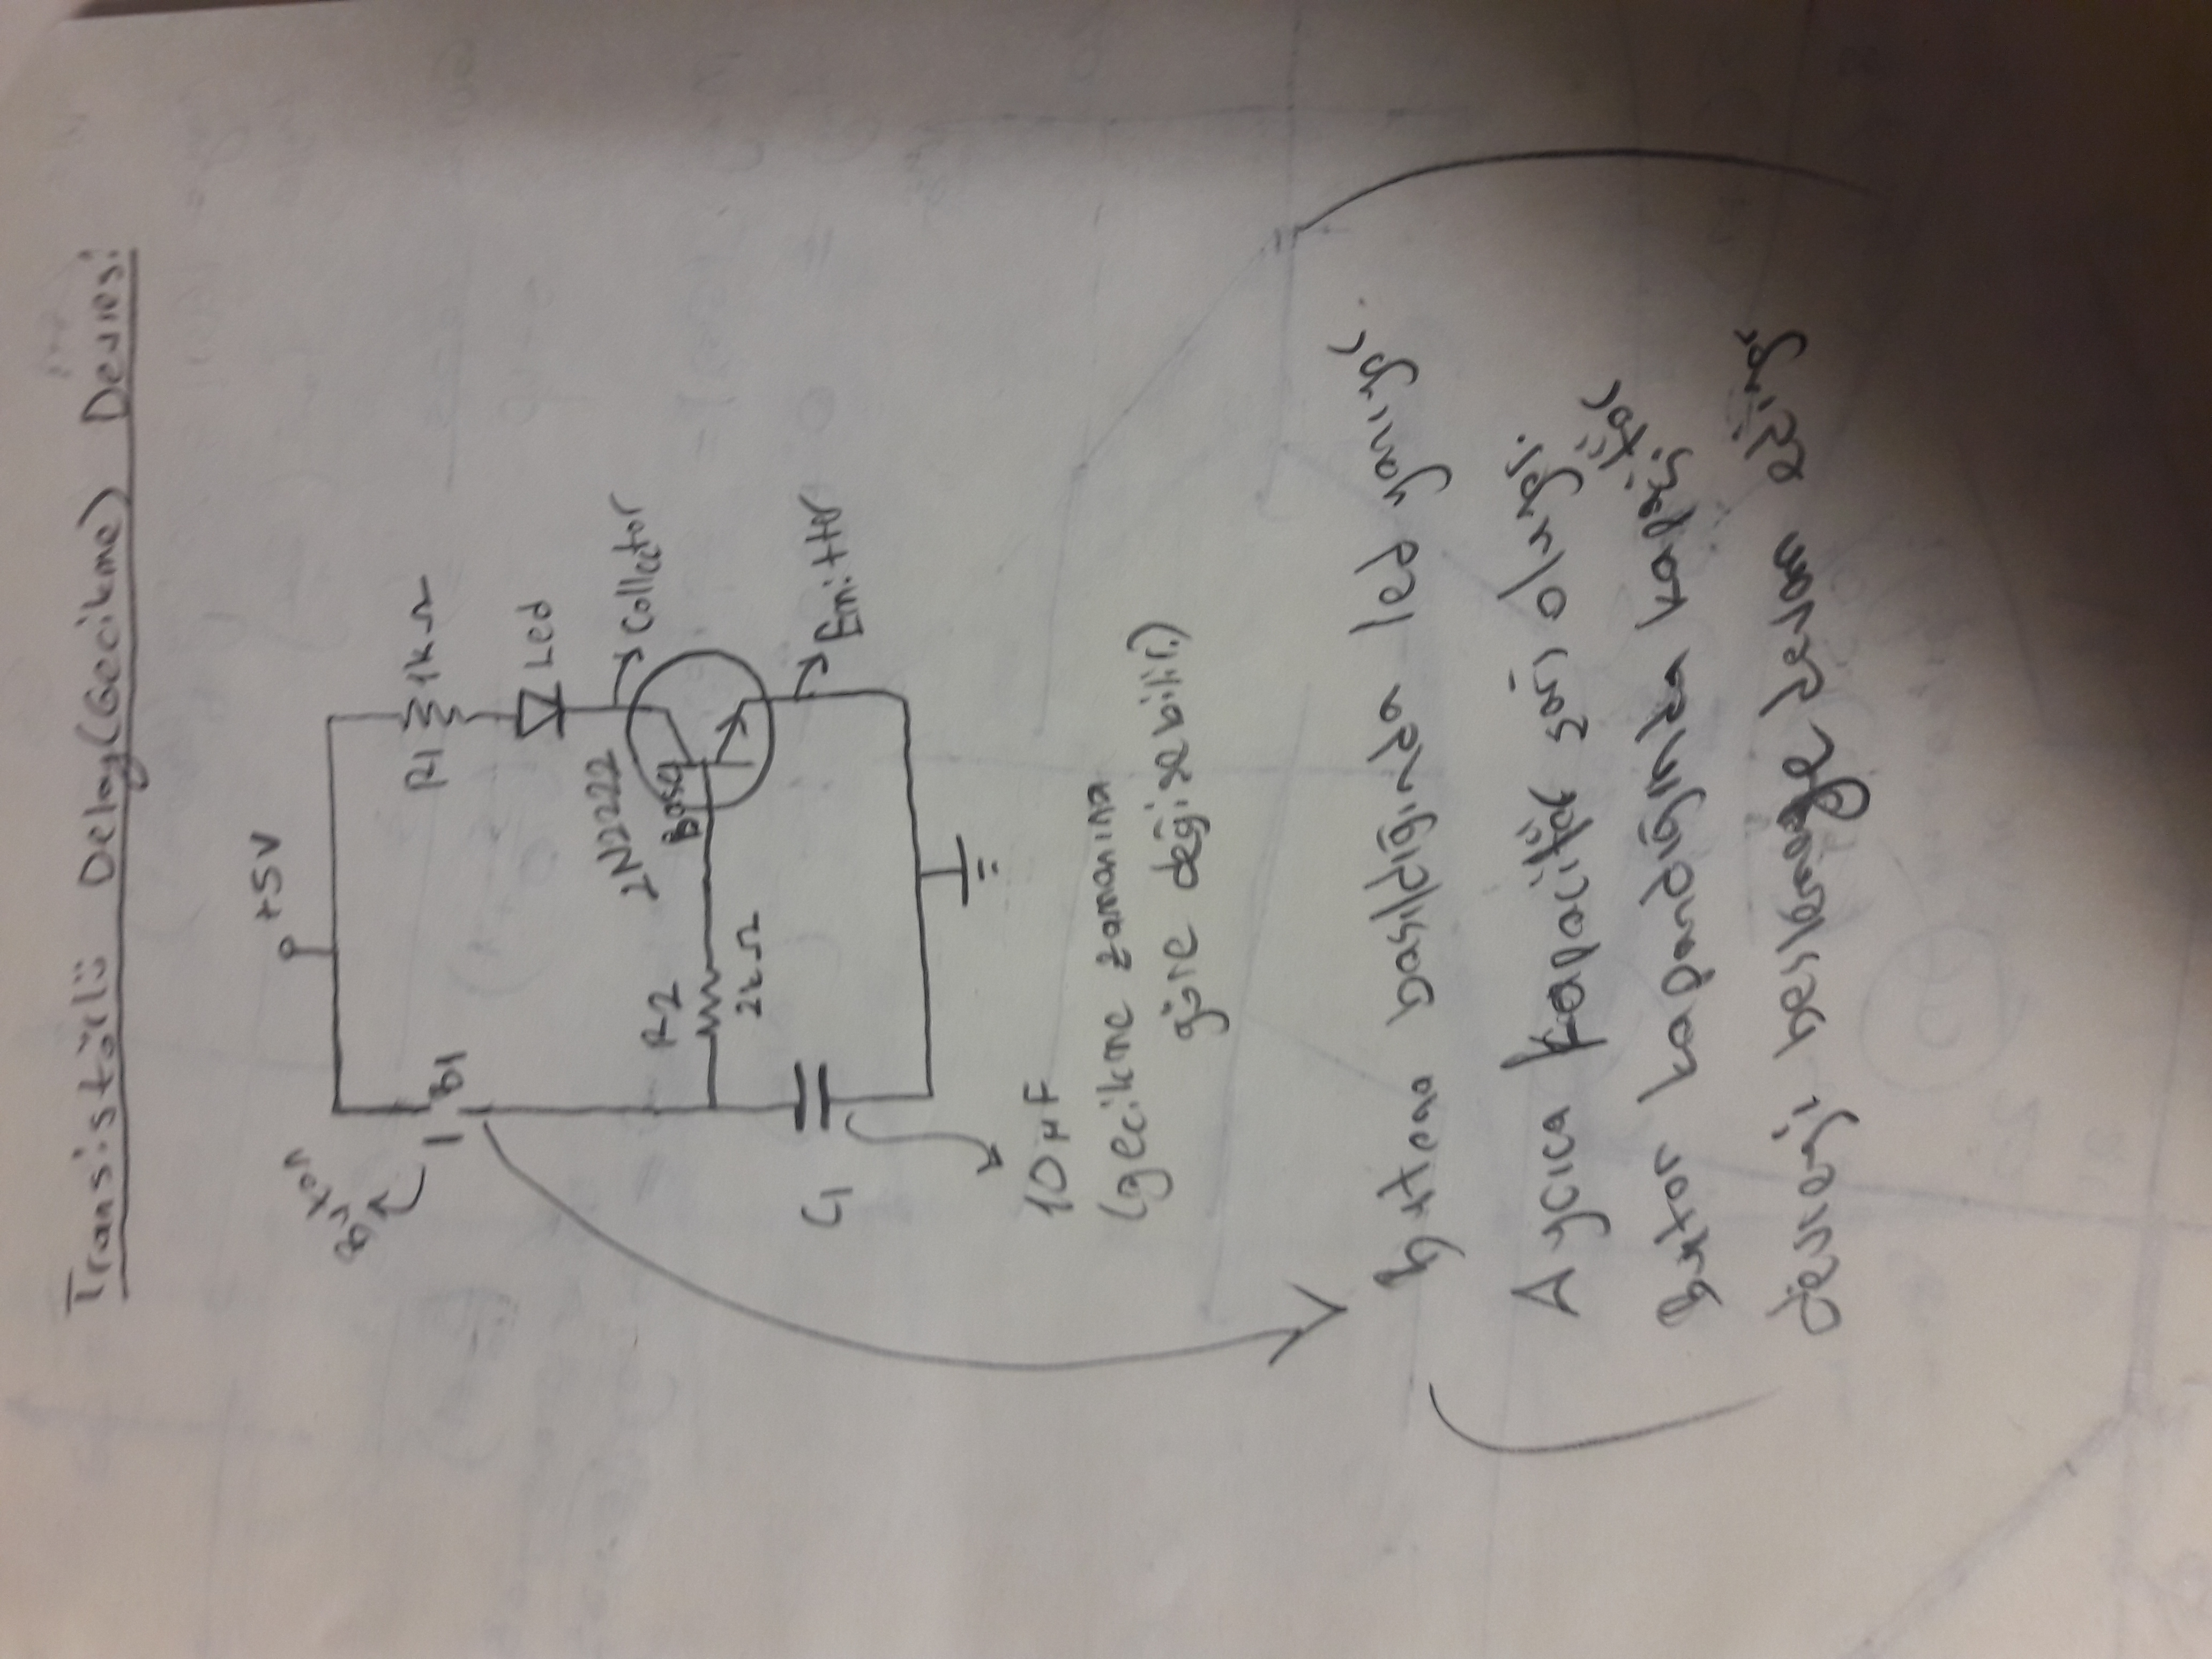 Transistörlü Delay(Gecikme) Devresi
+5V
Buton
B1
R1 1kΩ
Led
2N2222
Collector
R2
Base
2kΩ
C1
Emitter
10µF
(gecikme zamanına
göre değişebilir.)
Butona basıldığında led yanıyor.
Ayrıca kapacitör şarj oluyor.
Buton kapandığında kapaçitör
devreyi beslemeye devam ediyor